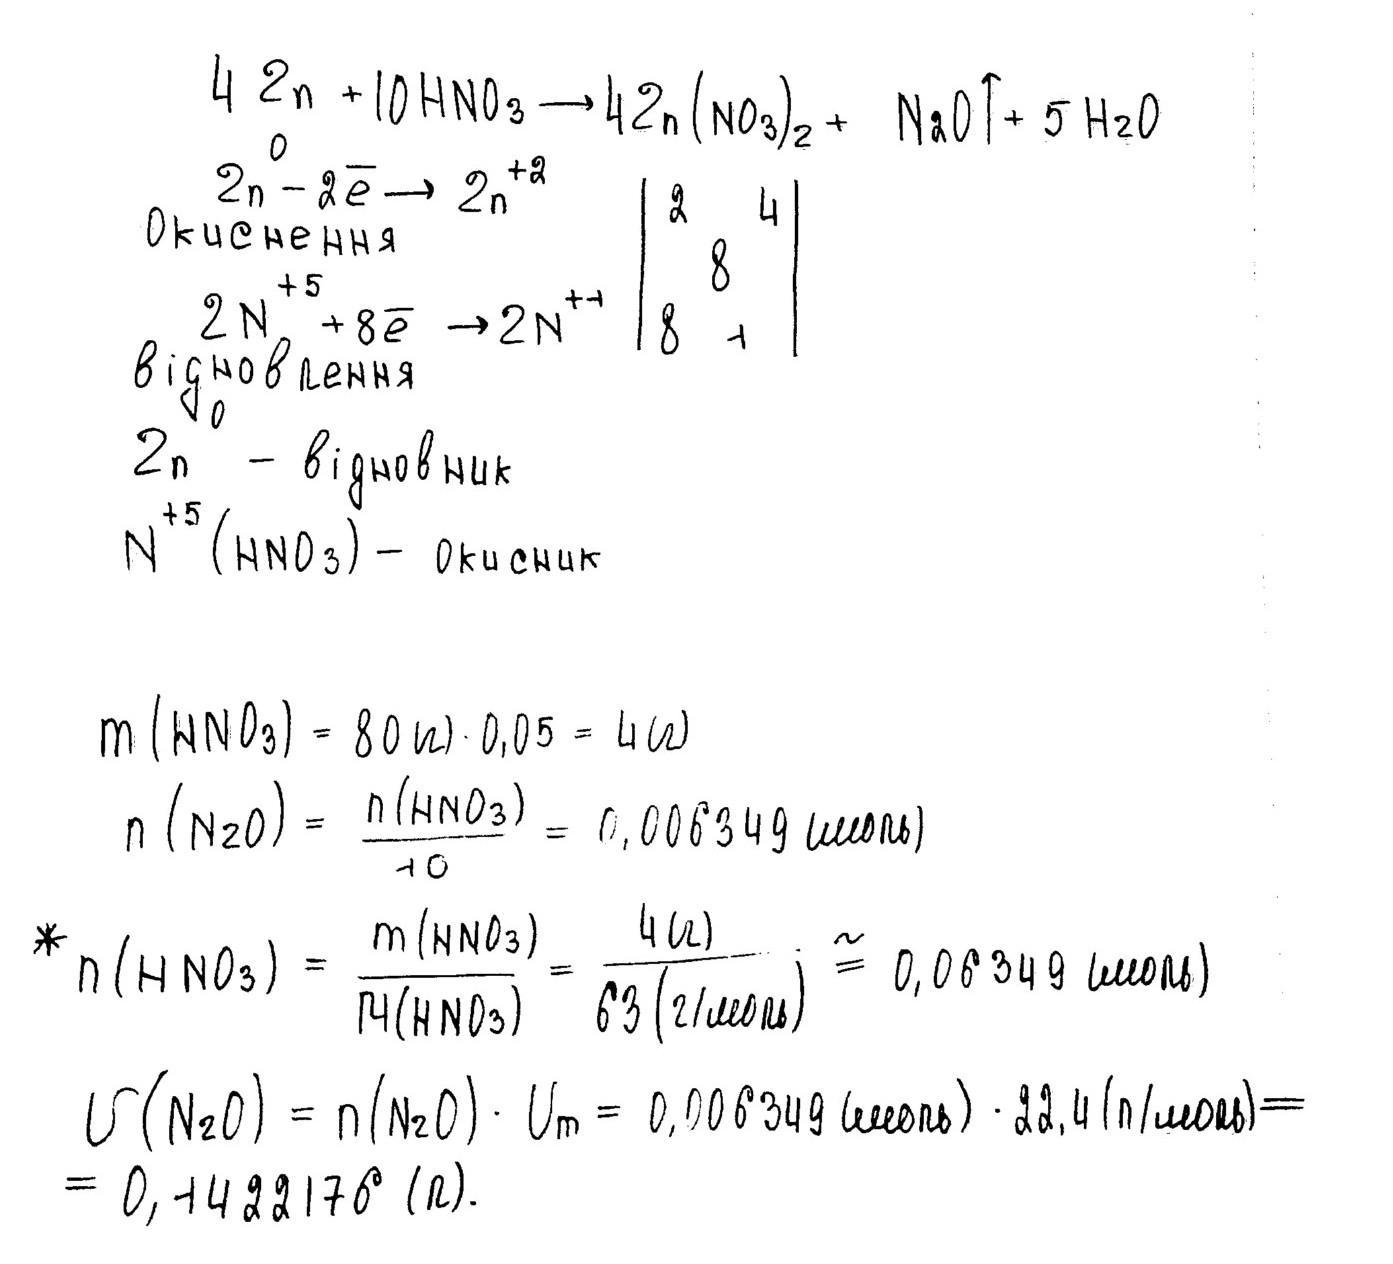 4 Zn + 10HNO3 → 4Zn(NO3)2 + N2O↑ + 5 H2O
Zn⁰ - 2e̅ → Zn⁺² | 2 4 |
Окиснення 8
2N⁺⁵ + 8e̅ → 2N⁺¹ | 8 1 |
відновлення
Zn⁰ – відновник
N⁺⁵ (HNO3) – окисник
m (HNO3) = 80 (г) · 0,05 = 4 (г)
n (N2O) = n(HNO3) / 10 = 0,006349 (моль)
* n(HNO3) = m(HNO3) / M(HNO3) = 4(г) / 63 (г/моль) ≅ 0,06349 (моль)
V(N2O) = n(N2O) · Vm = 0,006349 (моль) · 22,4 (л/моль) =
= 0,1422176 (л).